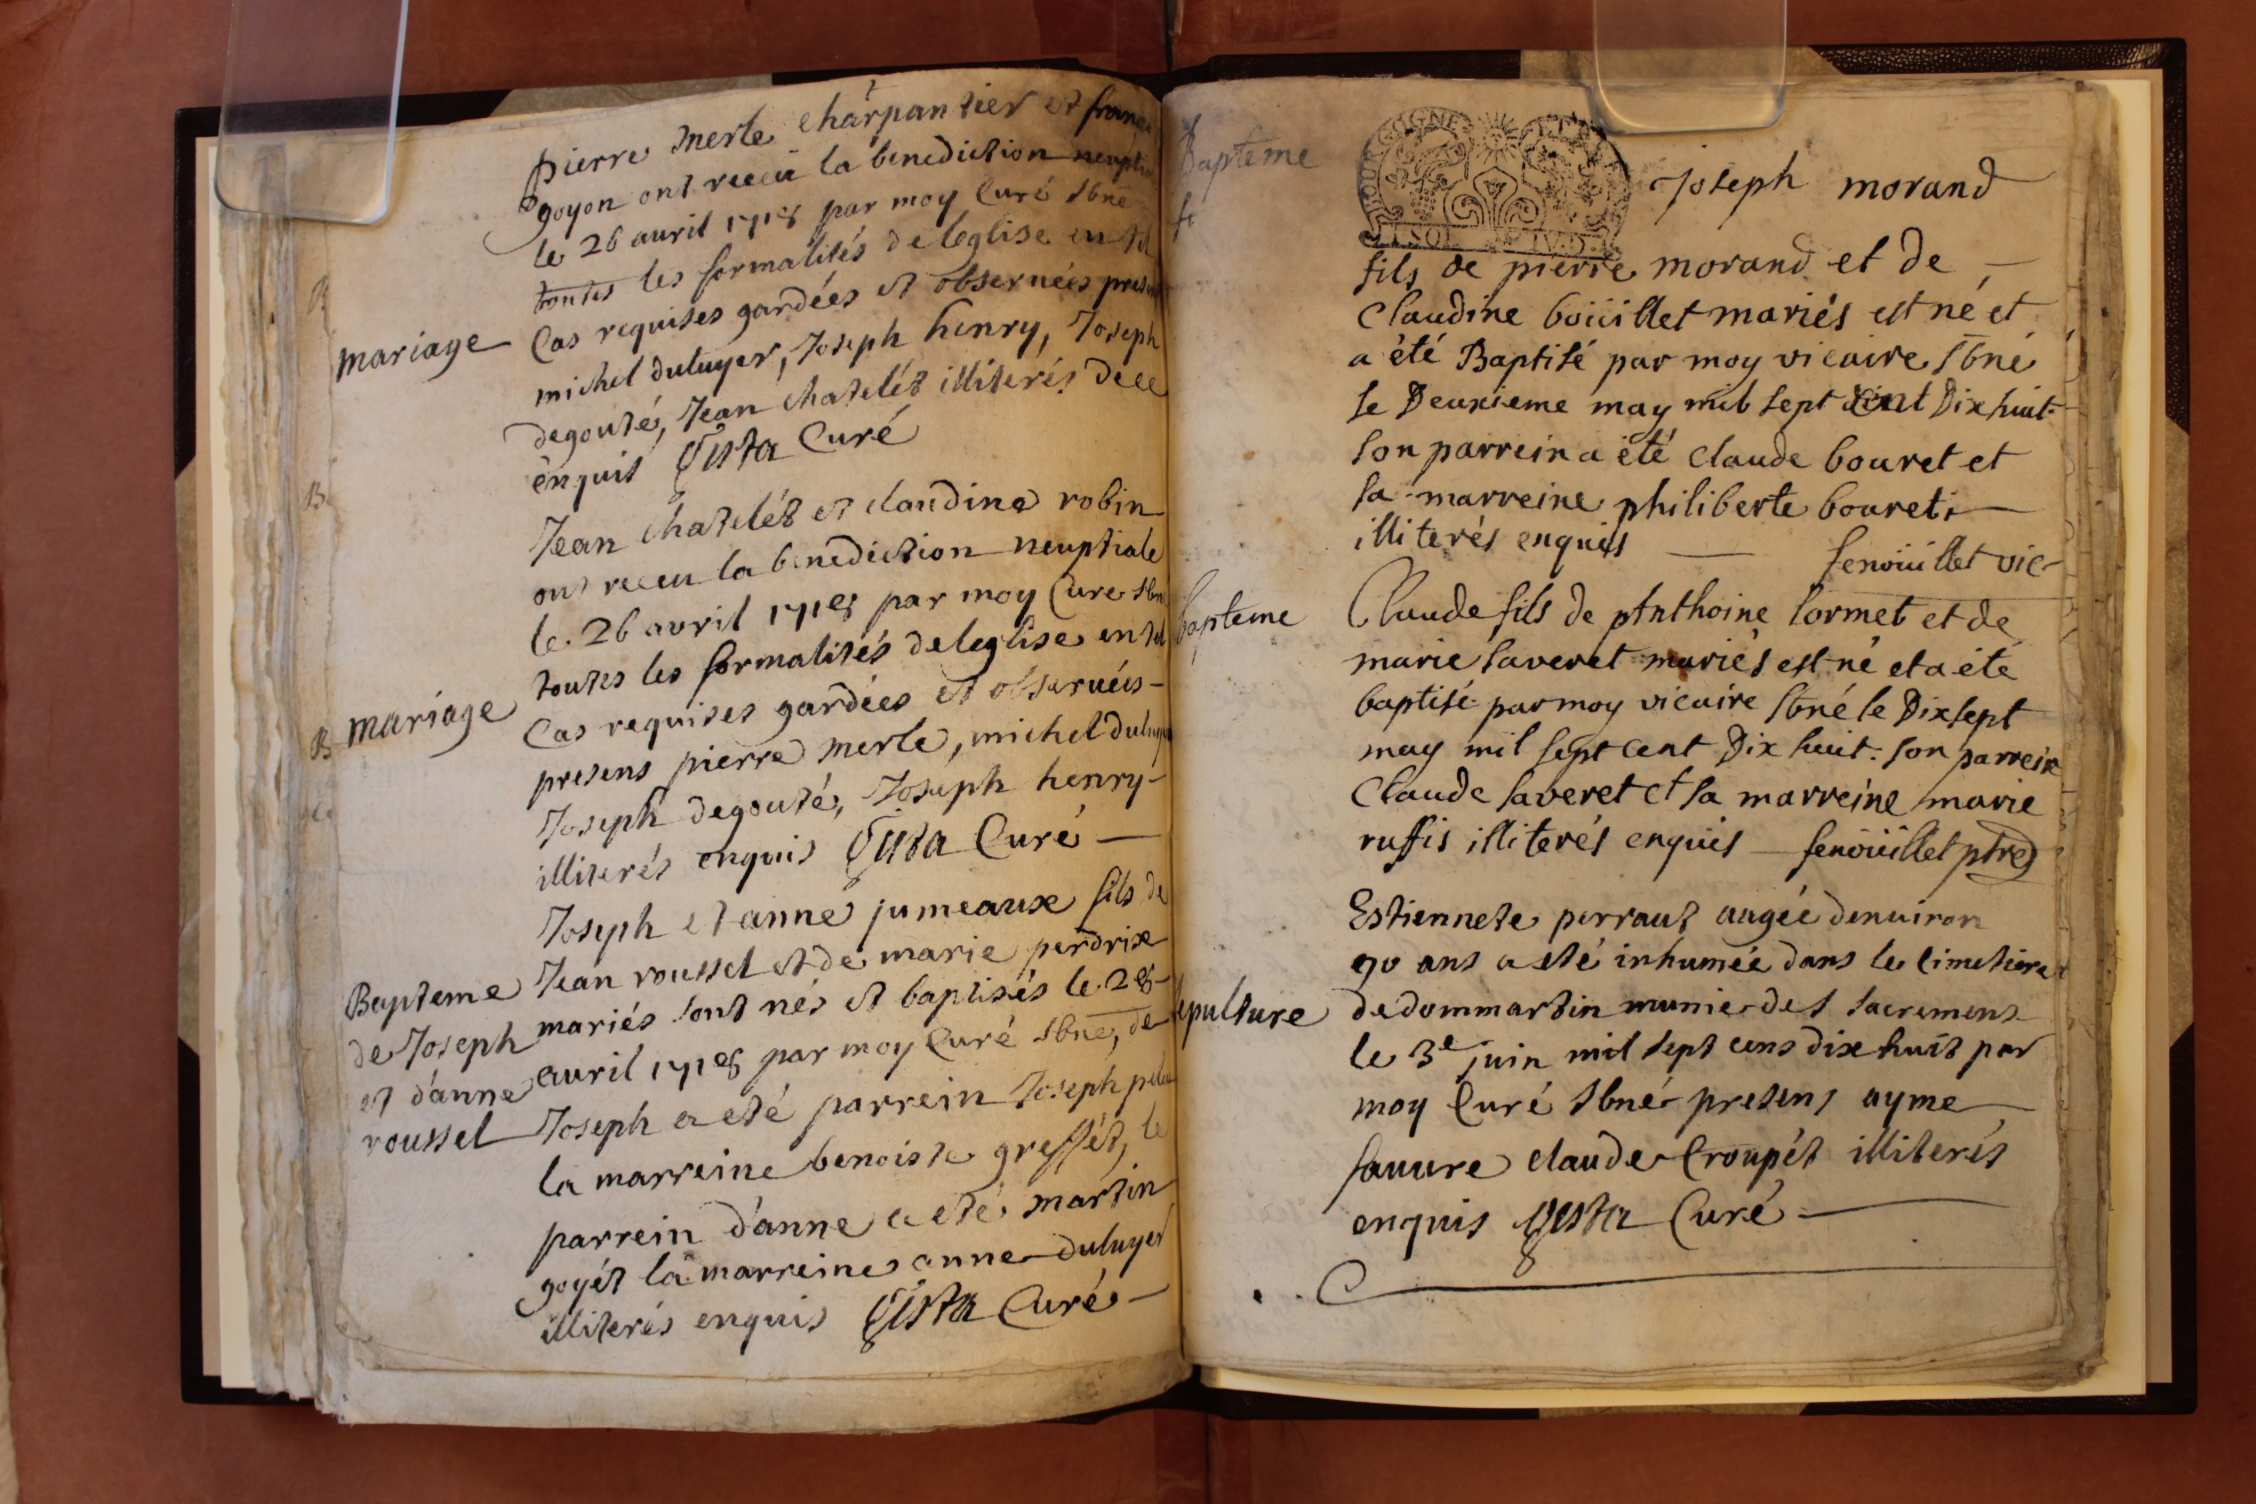 pierre merle charpantier et
goyon ont receu la benediction
le 26 avril 1718 par moy Curé sbné
toutes les formalités de leglise en tel
Cas requises gardées et observées
mariage
michel duluyer, Joseph henry, Joseph
degouté, Jean chatelét illiterés de ce
enquis Gista Curé
Jean chatelét et claudine robin
ont receu la benediction neuptiale
le 26 avril 1718 par moy Curé
toutes les formalités de leglise en tel
mariage
Cas requises gardées et observées
presens pierre merle, michel
Joseph degouté, Joseph henry
illiterés enquis Gista Curé
Joseph et anne jumeaux fils de
Jean roussel et de marie perdrix
Bapteme de Joseph et d'anne roussel
mariés sont nés et baptisés le 28
avril 1718 par moy Curé sbné, de
Joseph a eté parrein Joseph
la marreine benoiste greffét, le
parrein d'anne a eté martin
goyét la marreine anne duluyer
illiterés enquis Gista Curé
Bapteme
Joseph morand
fils de pierre morand et de
Claudine boüillet mariés est né et
a été Baptisé par moy vicaire sbné
le Deuxieme may mil sept cent Dix huit
son parrein a été claude bouret et
sa marreine philiberte bouret
illiterés enquis fenoüillet vic
bapteme
Claude fils de Anthoine lormet et de
marie saveret mariés est né et a été
baptisé par moy vicaire sbné le Dix sept
may mil sept cent Dix huit. son parrein
Claude saveret et sa marreine marie
ruffis illiterés enquis fenoüillet ptre
Estiennete perraut aagée denuiron
90 ans a eté inhumée dans le Cimetiere
sepulture
de dommartin munie des sacremens
le 3e juin mil sept cens dix huit par
moy Curé sbné presens ayme
sauure claude Croupét illiterés
enquis Gista Curé